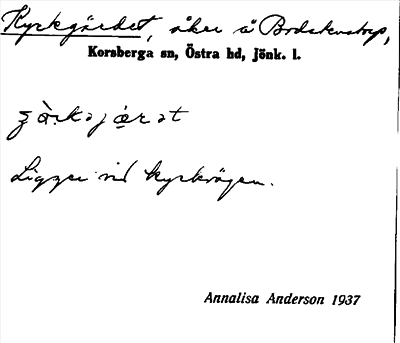 Kyrkgärdet, åker å Bodstenstorp,
Korsberga sn, Östra hd, Jönk. l.
Ligger vid kyrkvägen.
Annalisa Anderson 1937